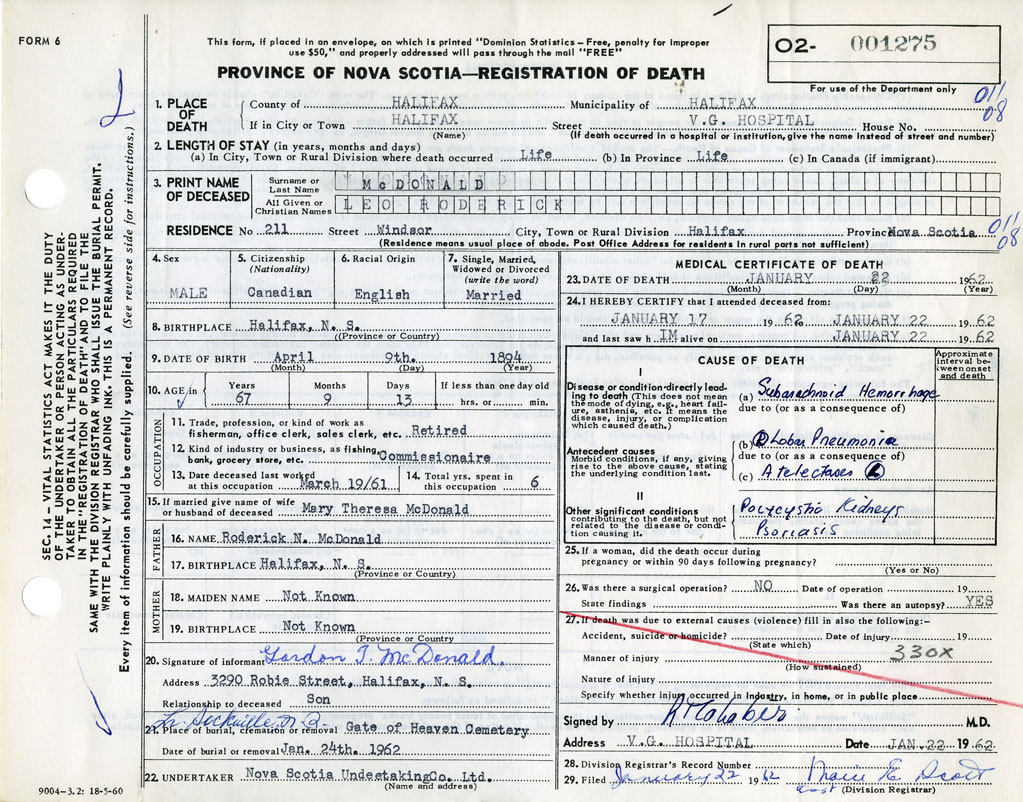 FORM 6
This form, if placed in an envelope, on which is printed "Dominion Statistics – Free, penalty for improper
use $50," and properly addressed will pass through the mail "FREE"
PROVINCE OF NOVA SCOTIA—REGISTRATION OF DEATH
O2- 001275
For use of the Department only
011/08
1. PLACE OF DEATH
County of HALIFAX Municipality of HALIFAX
If in City or Town HALIFAX Street V.G. HOSPITAL House No.
(Name) (If death occurred in a hospital or institution, give the name instead of street and number)
2. LENGTH OF STAY (in years, months and days)
(a) In City, Town or Rural Division where death occurred Life (b) In Province Life (c) In Canada (if immigrant)
3. PRINT NAME OF DECEASED
Surname or Last Name McDONALD
All Given or Christian Names LEO RODERICK
RESIDENCE No 211 Street Windsor City, Town or Rural Division Halifax Province Nova Scotia
011/08
(Residence means usual place of abode. Post Office Address for residents in rural parts not sufficient)
4. Sex
MALE
5. Citizenship
(Nationality)
Canadian
6. Racial Origin
English
7. Single, Married,
Widowed or Divorced
(write the word)
Married
8. BIRTHPLACE Halifax, N. S.
((Province or Country)
9. DATE OF BIRTH April 9th. 1894
(Month) (Day) (Year)
10. AGE in
Years Months Days If less than one day old
67 9 13 hrs. or min.
OCCUPATION
11. Trade, profession, or kind of work as
fisherman, office clerk, sales clerk, etc. Retired
12. Kind of industry or business, as fishing,
bank, grocery store, etc. Commissionaire
13. Date deceased last worked
at this occupation March 19/61
14. Total yrs. spent in
this occupation 6
15. If married give name of wife
or husband of deceased Mary Theresa McDonald
FATHER
16. NAME Roderick N. McDonald
17. BIRTHPLACE Halifax, N. S.
(Province or Country)
MOTHER
18. MAIDEN NAME Not Known
19. BIRTHPLACE Not Known
(Province or Country
20. Signature of informant Gordon J. McDonald.
Address 3290 Robie Street, Halifax, N. S.
Relationship to deceased Son
21. Place of burial, cremation or removal Gate of Heaven Cemetery
Date of burial or removal Jan. 24th. 1962
22. UNDERTAKER Nova Scotia UndeetakingCo. Ltd.
(Name and address)
9004-3.2: 18-5-60
MEDICAL CERTIFICATE OF DEATH
23. DATE OF DEATH JANUARY 22 1962
(Month) (Day) (Year)
24. I HEREBY CERTIFY that I attended deceased from:
JANUARY 17 1962 to JANUARY 22 1962
and last saw h IM alive on JANUARY 22 1962
CAUSE OF DEATH
Approximate
interval be-
tween onset
and death
I
Disease or condition directly lead-
ing to death (This does not mean
the mode of dying, e.g., heart fail-
ure, asthenia, etc. It means the
disease, injury, or complication
which caused death.)
(a) Subarachnoid Hemorrhage
due to (or as a consequence of)
Antecedent causes
Morbid conditions, if any, giving
rise to the above cause, stating
the underlying condition last.
(b) Lobar Pneumonia
due to (or as a consequence of)
(c) Atelectases L
II
Other significant conditions
contributing to the death, but not
related to the disease or condi-
tion causing it.
Polycystic Kidneys
Psoriasis
25. If a woman, did the death occur during
pregnancy or within 90 days following pregnancy?
(Yes or No)
26. Was there a surgical operation? NO Date of operation 19
State findings Was there an autopsy? YES
27. If death was due to external causes (violence) fill in also the following:–
Accident, suicide or homicide? Date of injury 19
(State which)
Manner of injury 330X
(How sustained)
Nature of injury
Specify whether injury occurred in Industry, in home, or in public place
Signed by M.D.
Address V.G. HOSPITAL Date JAN.22 1962
28. Division Registrar's Record Number
29. Filed January 22 1962 Marie E Scott
(Division Registrar)
SEC. 14 – VITAL STATISTICS ACT MAKES IT THE DUTY
OF THE UNDERTAKER OR PERSON ACTING AS UNDER-
TAKER TO OBTAIN ALL THE PARTICULARS REQUIRED
IN THE "REGISTRATION OF DEATH" AND TO FILE THE
SAME WITH THE DIVISION REGISTRAR WHO SHALL ISSUE THE BURIAL PERMIT.
WRITE PLAINLY WITH UNFADING INK. THIS IS A PERMANENT RECORD.
Every item of information should be carefully supplied. (See reverse side for instructions.)